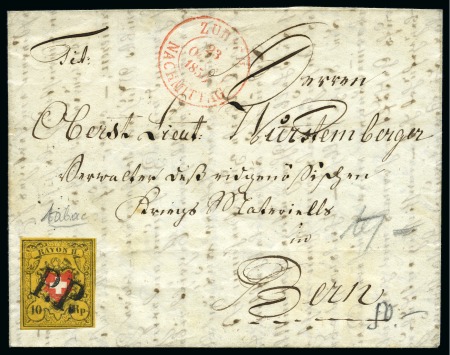 ZÜRICH
23
OCT
185
NACHMITTAG
Tit:
Herren
Oberst Lieut: Wurstemberger
Verwalter deß eidgenößischen
Kriegs Materiells
in
Bern
tabac
RAYON II
P.P.
10 Rp